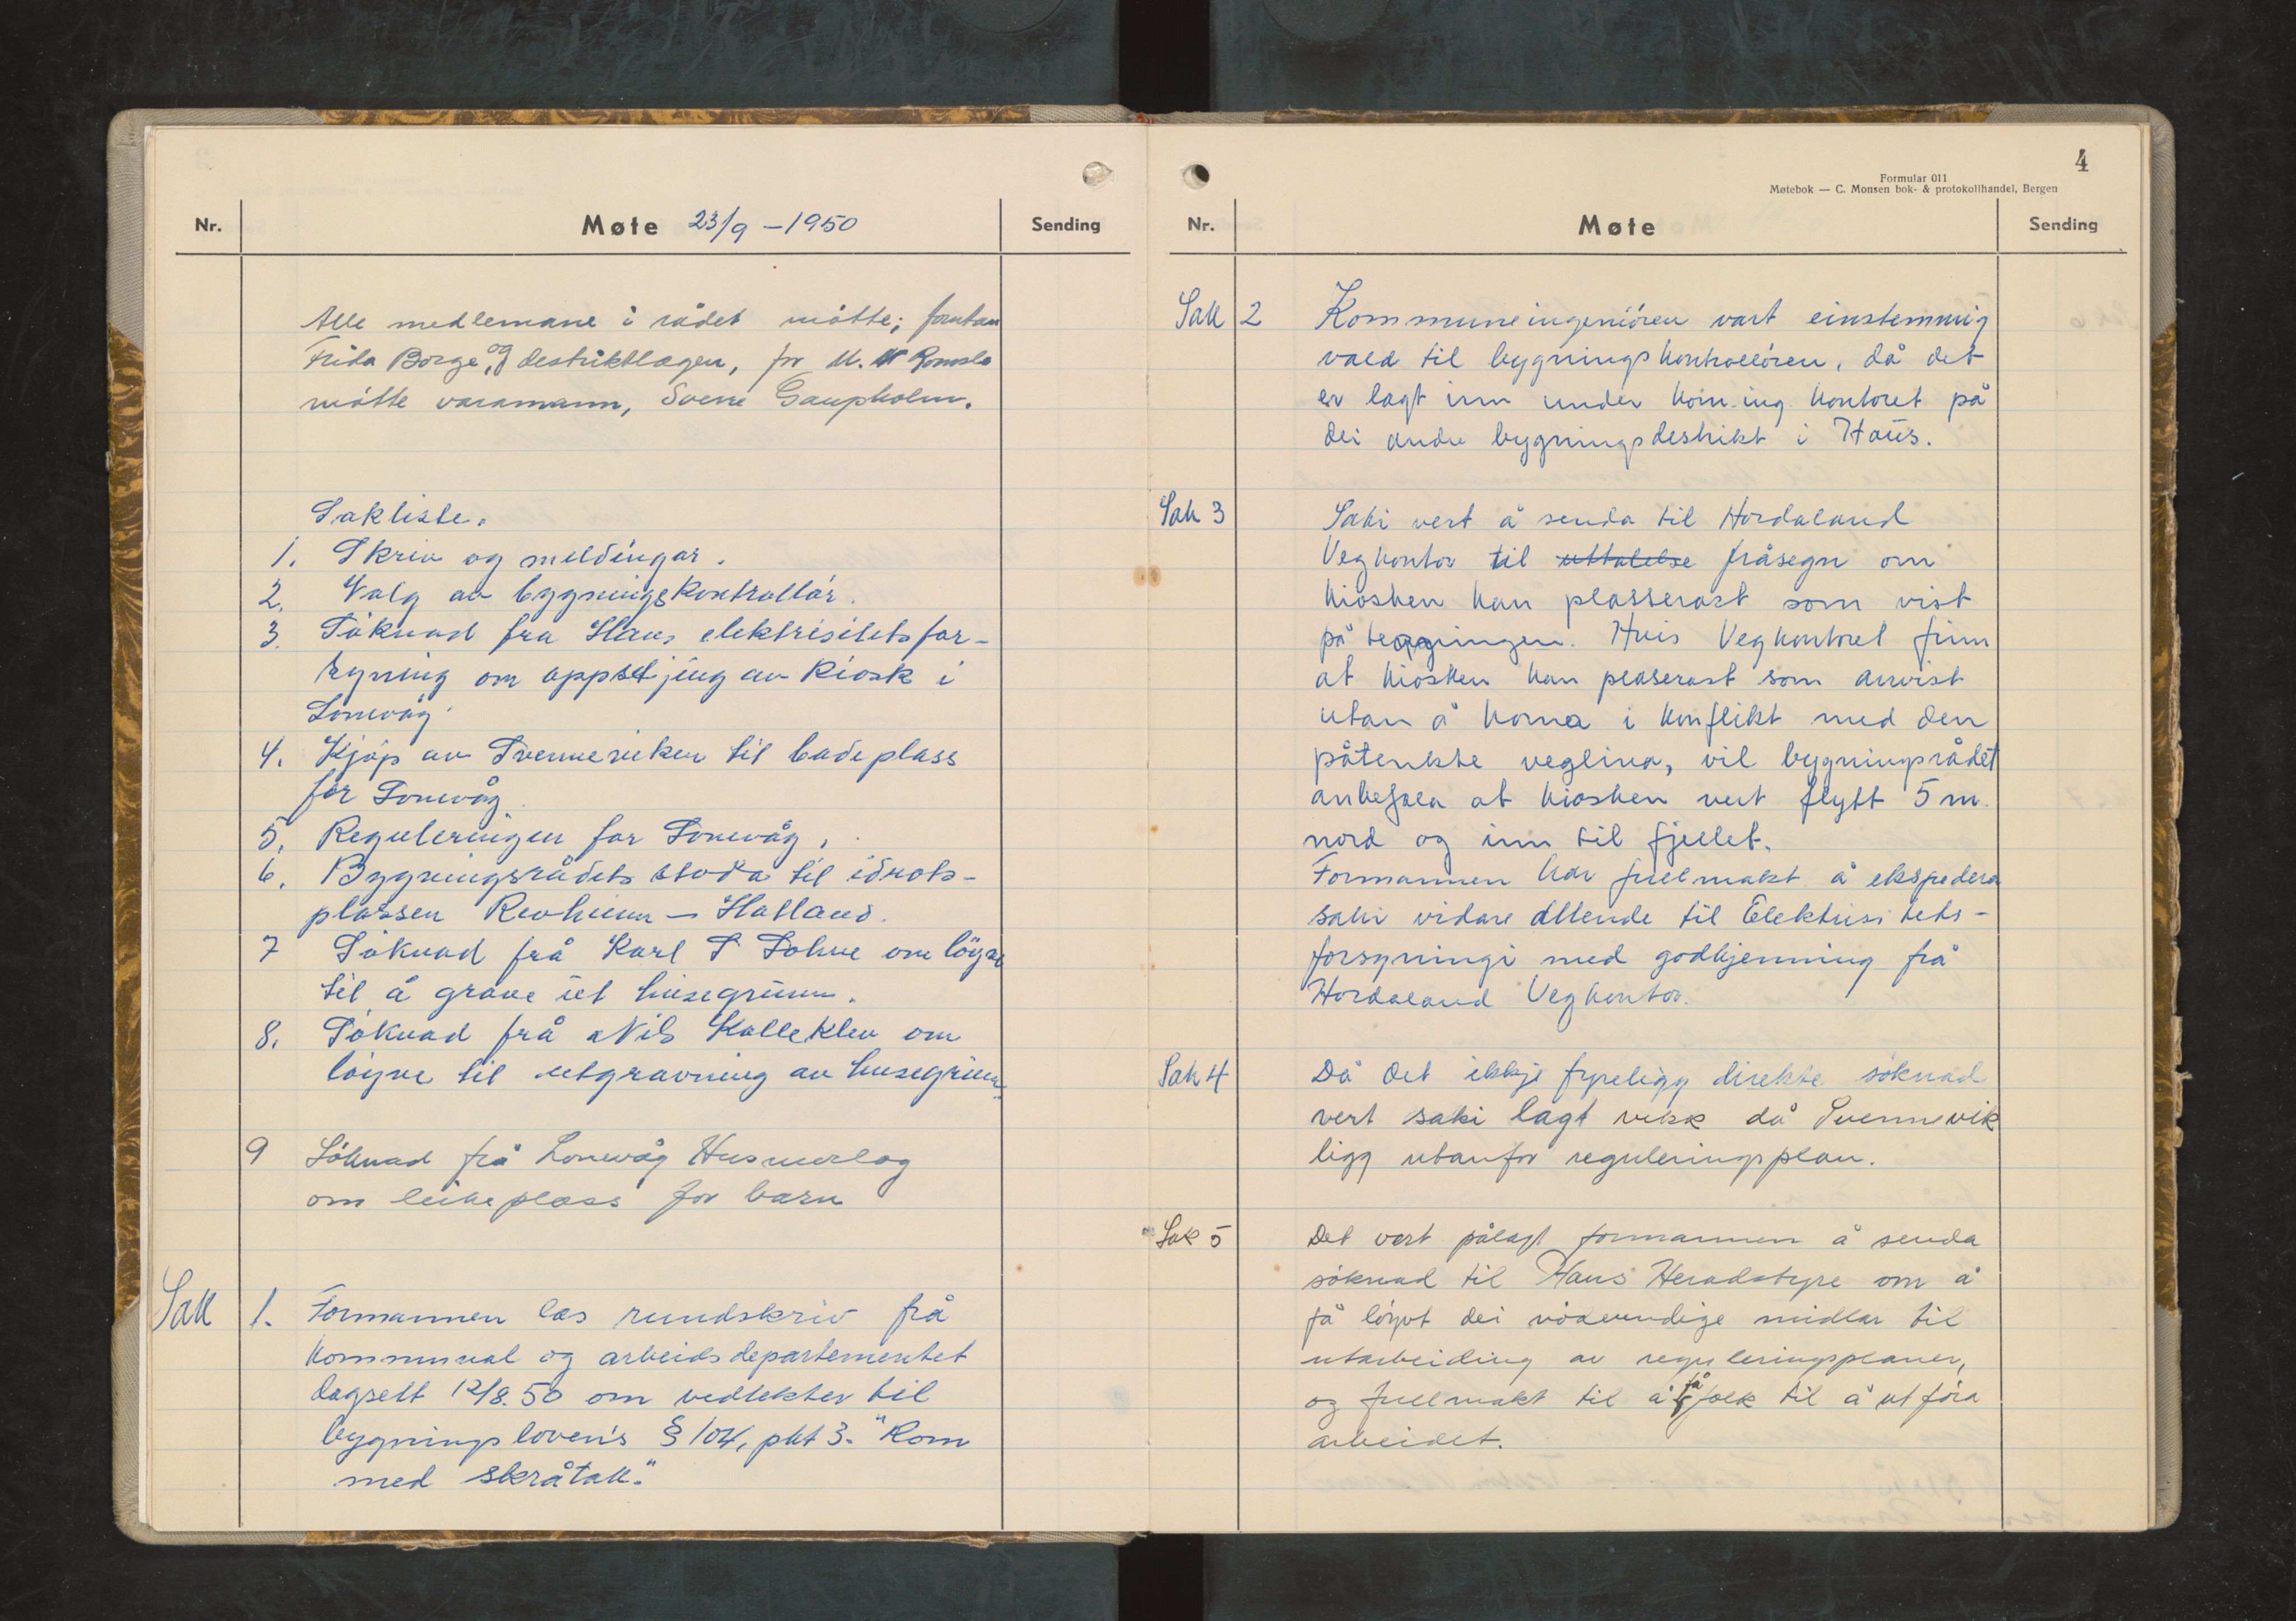 Nr.
Møte 23/9 – 1950
Sending
Alle medlemane i rådet møtte; forutan
Frida Borge, og destriktlægen, for M. Romslo
møtte varamann, Sverre Gaupholm.
Sakliste.
1. Skriv og meldingar.
2. Valg av bygningskontrollör.
3. Söknad fra Haus elektrisitetsfor-
syning om oppsetjing av kiosk i
Lonevåg.
4. Kjöp av Svenneviken til badeplass
for Lonevåg.
5. Reguleringen for Lonevåg.
6. Bygningsrådets stoda til idrots-
plassen Revheim – Hatland.
7 Söknad frå Karl S Lohne om löyve
til å grave ut husegrunn.
8. Söknad frå Nils Kalleklev om
löyve til utgravning av husegrunn
9 Söknad frå Lonevåg Husmorlag
om leikeplass for barn
Sak 1. Formannen las rundskriv frå
kommunal og arbeidsdepartementet
dagsett 12/8.50 om vedtekter til
bygningsloven's § 104, pkt 3. "Rom
med skråtak."
4
Formular 011
Møtebok — C. Monsen bok- & protokollhandel, Bergen
Nr.
Møte
Sending
Sak 2 Kommuneingeniören vart einstemmig
vald til bygningskontrollören, då det
er lagt inn under kom.ing. kontoret på
dei andre bygningsdestrikt i Haus.
Sak 3 Saki vert å senda til Hordaland
Vegkontor til uttalelse fråsegn om
kiosken kan plasserast som vist
på tegningen. Hvis Vegkontoret finn
at kiosken kan plaserast som anvist
utan å koma i konflikt med den
påtenkte veglina, vil bygningsrådet
anbefala at kiosken vert flytt 5 m.
nord og inn til fjellet.
Formannen har fullmakt å ekspedera
saki vidare attende til Elektrisitets-
forsyningi med godkjenning frå
Hordaland Vegkontor.
Sak 4 Då det ikkje fyreligg direkte söknad
vert saki lagt vekk då Svennevik
ligg utanfor reguleringsplan.
Sak 5 Det vert pålagt formannen å senda
söknad til Haus Heradstyre om å
få löyvt dei nödvendige midlar til
utarbeiding av reguleringsplaner,
og fullmakt til å få folk til å utföra
arbeidet.